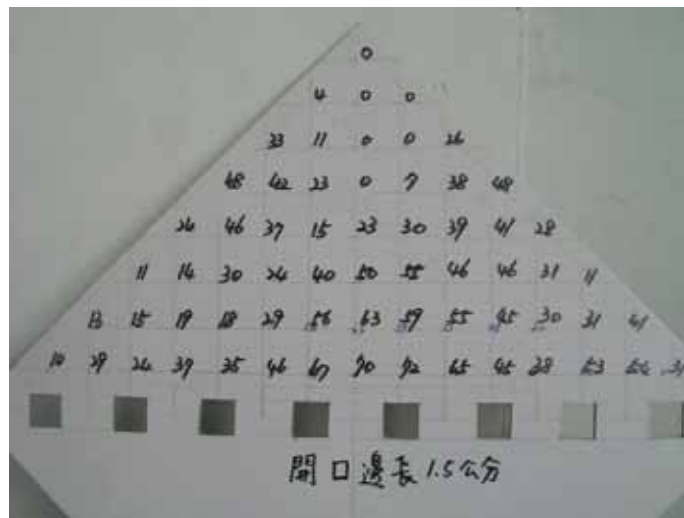 0
4 0 0
33 11 0 0 26
48 42 23 0 7 38 48
26 46 37 15 23 30 39 41 28
11 14 30 24 40 50 55 46 46 31 11
13 15 19 18 29 56 63 59 55 45 30 31 41
10 29 26 39 35 46 67 70 72 65 45 38 53 31
開口邊長1.5公分